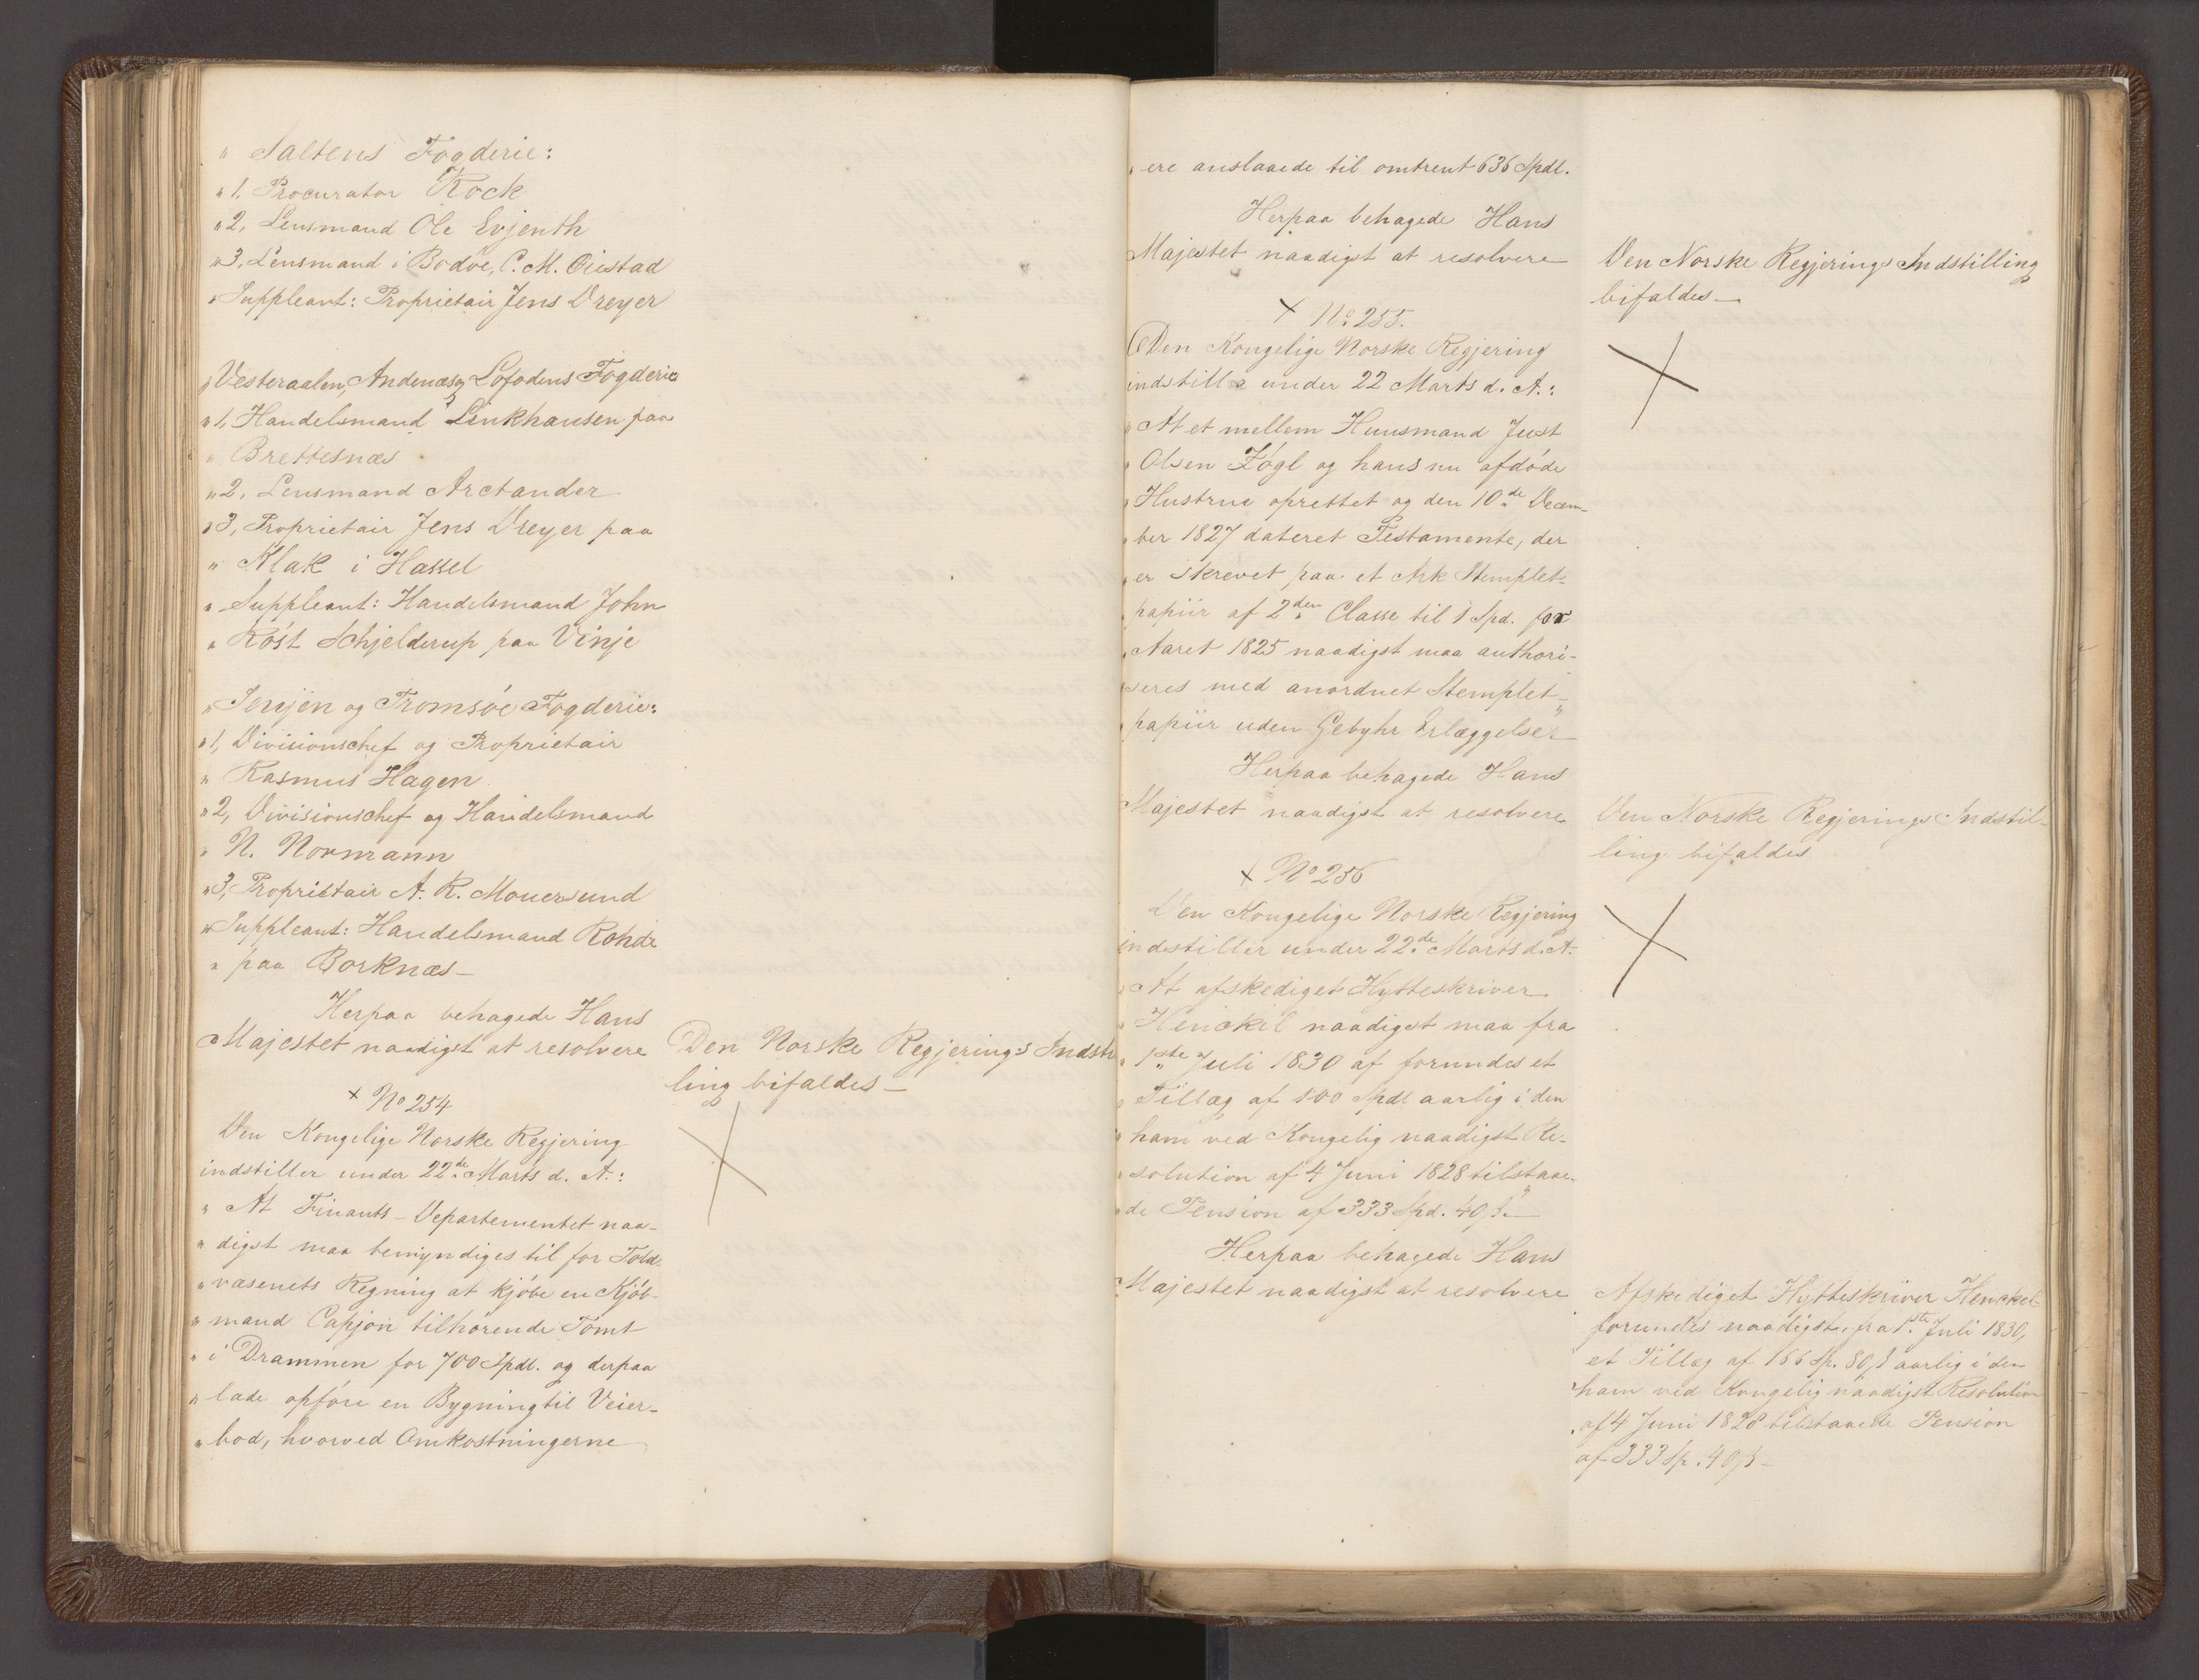 " Saltens Fogderie:
" 1, Procurator Kock
" 2, Lensmand Ole Evjenth
" 3, Lensmand i Bodøe, C. M. Øiestad
" Suppleant: Proprietair Jens Dreyer
" Vesteraalen, Andenæs og Lofodens Fogderie
" 1, Handelsmand Linkhausen paa
" Brettesnæs
" 2, Lensmand Arctander
" 3, Proprietair Jens Dreyer paa
" Klak i Hassel
" Suppleant: Handelsmand John
" Røst Schjelderup paa Vinje
" Senjen og Tromsøe Fogderie:
" 1, Divisionschef og Proprietair
" Rasmus Hagen
" 2, Divisionschef og Handelsmand
" N. Normann
" 3, Proprietair A. R. Mouersund
" Suppleant: Handelsmand Rohde
" paa Borknæs –
Herpaa behagede Hans
Majestet naadigst at resolvere
Den Norske Regjerings Indstil
ling bifaldes –
× No 254
Den Kongelige Norske Regjering
indstiller under 22de Marts d. A.:
" At Finants-Departementet naa-
" digst maa bemyndiges til for Told-
" væsenets Regning at kjøbe en Kjøb-
" mand Capjon tilhørende Tomt
" i Drammen for 700 Spdl. og derpaa
" lade opføre en Bygning til Veier-
" bod, hvorved Omkostningerne
" ere anslaaede til omtrent 636 Spdl.
Herpaa behagede Hans
Majestet naadigst at resolvere
Den Norske Regjerings Indstilling
bifaldes –
× No 255.
Den Kongelige Norske Regjering
indstiller under 22 Marts d. A.:
" At et mellem Huusmand Just
" Olsen Føgl og hans nu afdøde
" Hustrue oprettet og den 10de Decem-
" ber 1827 dateret Testamente, der
" er skrevet paa et Ark Stemplet-
" papiir af 2den Classe til 1 Spd. for
" Aaret 1825 naadigst maa authori-
" seres med anordnet Stemplet-
" papiir uden Gebyhr Erlæggelse" –
Herpaa behagede Hans
Majestet naadigst at resolvere
Den Norske Regjerings Indstil-
ling bifaldes
× No 256
Den Kongelige Norske Regjering
indstiller under 22de Marts d. A.
" At afskediget Hytteskriver
" Henckel naadigst maa fra
" 1ste Juli 1830 af forundes et
" Tillæg af 100 Spdl aarlig i den
" ham ved Kongelig naadigst Re-
" solution af 4 Juni 1828 tilstaae-
" de Pension af 333 Spd. 40 ß." –
Herpaa behagede Hans
Majestet naadigst at resolvere
Afskediget Hytteskriver Henckel
forundes naadigst, fra 1ste Juli 1830,
et Tillæg af 166 Sp. 80 ß aarlig i den
ham ved Kongelig naadigst Resolution
af 4 Juni 1828 tilstaaede Pension
af 333 Sp. 40 ß –